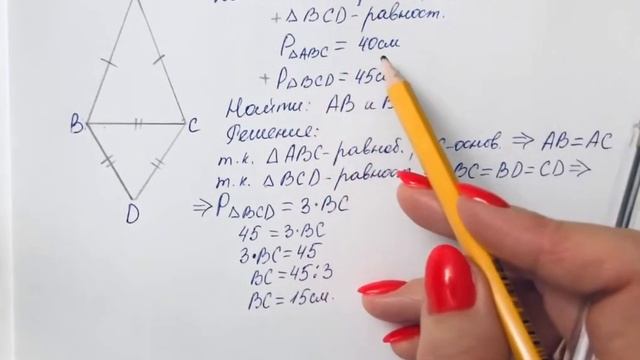 + △BCD - равност.
P△ABC = 40см
+ P△BCD = 45с
Найти: AB и B
Решение:
т.к. △ABC-равноб., С-основ. ⇒ AB=AC
т.к. △BCD-равност BC=BD=CD ⇒
⇒ P△BCD = 3·BC
45 = 3·BC
3·BC = 45
BC = 45:3
BC = 15см.
B
C
D